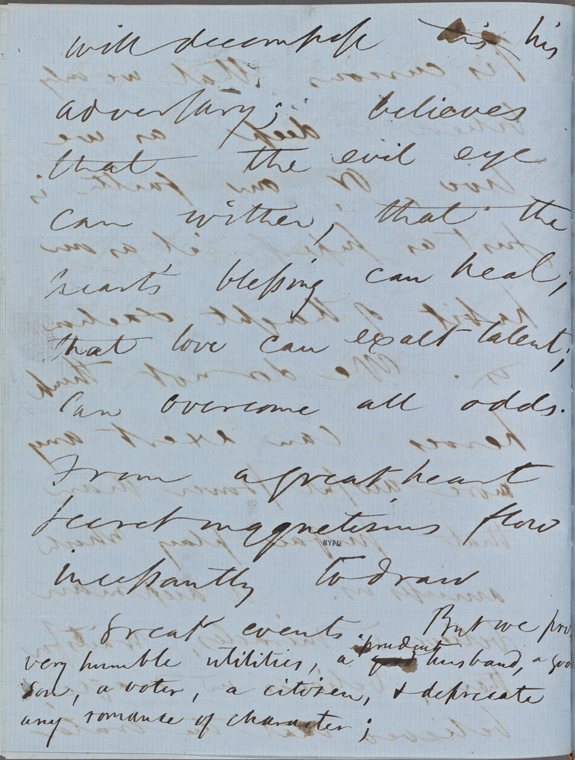 will decompose his
adversary; believes
that the evil eye
can wither, that the
heart's blessing can heal;
that love can exalt talent;
can overcome all odds.
From a great heart
secret magnetisms flow
incessantly to draw
great events. But we
very humble utilities, a prudent husband, a
son, a voter, a citizen, & deprecate
any romance of character;
NYPL